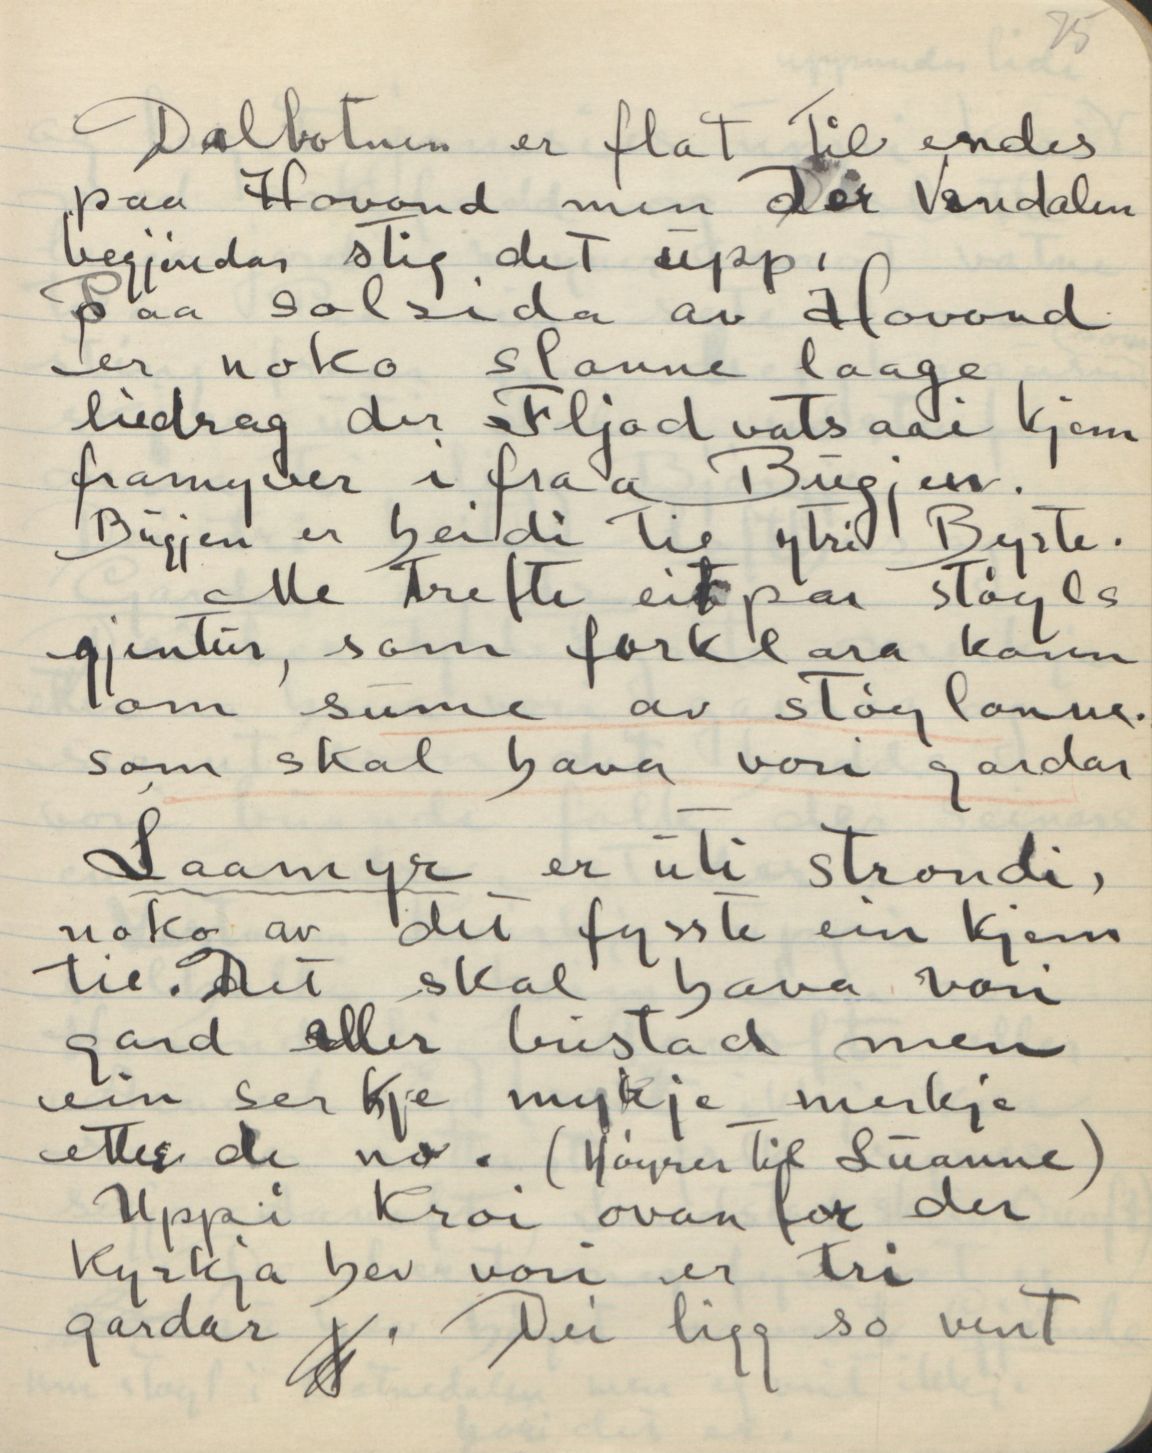 75
Dalbotnen er flat til endes
paa Hovond men der Vendalen
begjyndar stig det upp.
Paa solsida av Hovond
er noko slanne laage
liedrag der Fljodvatsaai kjem
framyver i fraa Bugjen.
Bugjen er heidi til ytri Byrte.
Me trefte eit par støyls
gjentur, som forklara kann
om sume av støylanne.
som skal hava vori gardar
Laamyr er uti strondi,
noko av det fysste ein kjem
til. Det skal hava vori
gard eller bustad men
ein ser kje mykje merkje
etter de no. (Høyrer til Luanne)
Uppi Kroi ovanfor der
Kyrkja hev vori er tri
gardar. Dei ligg so vent